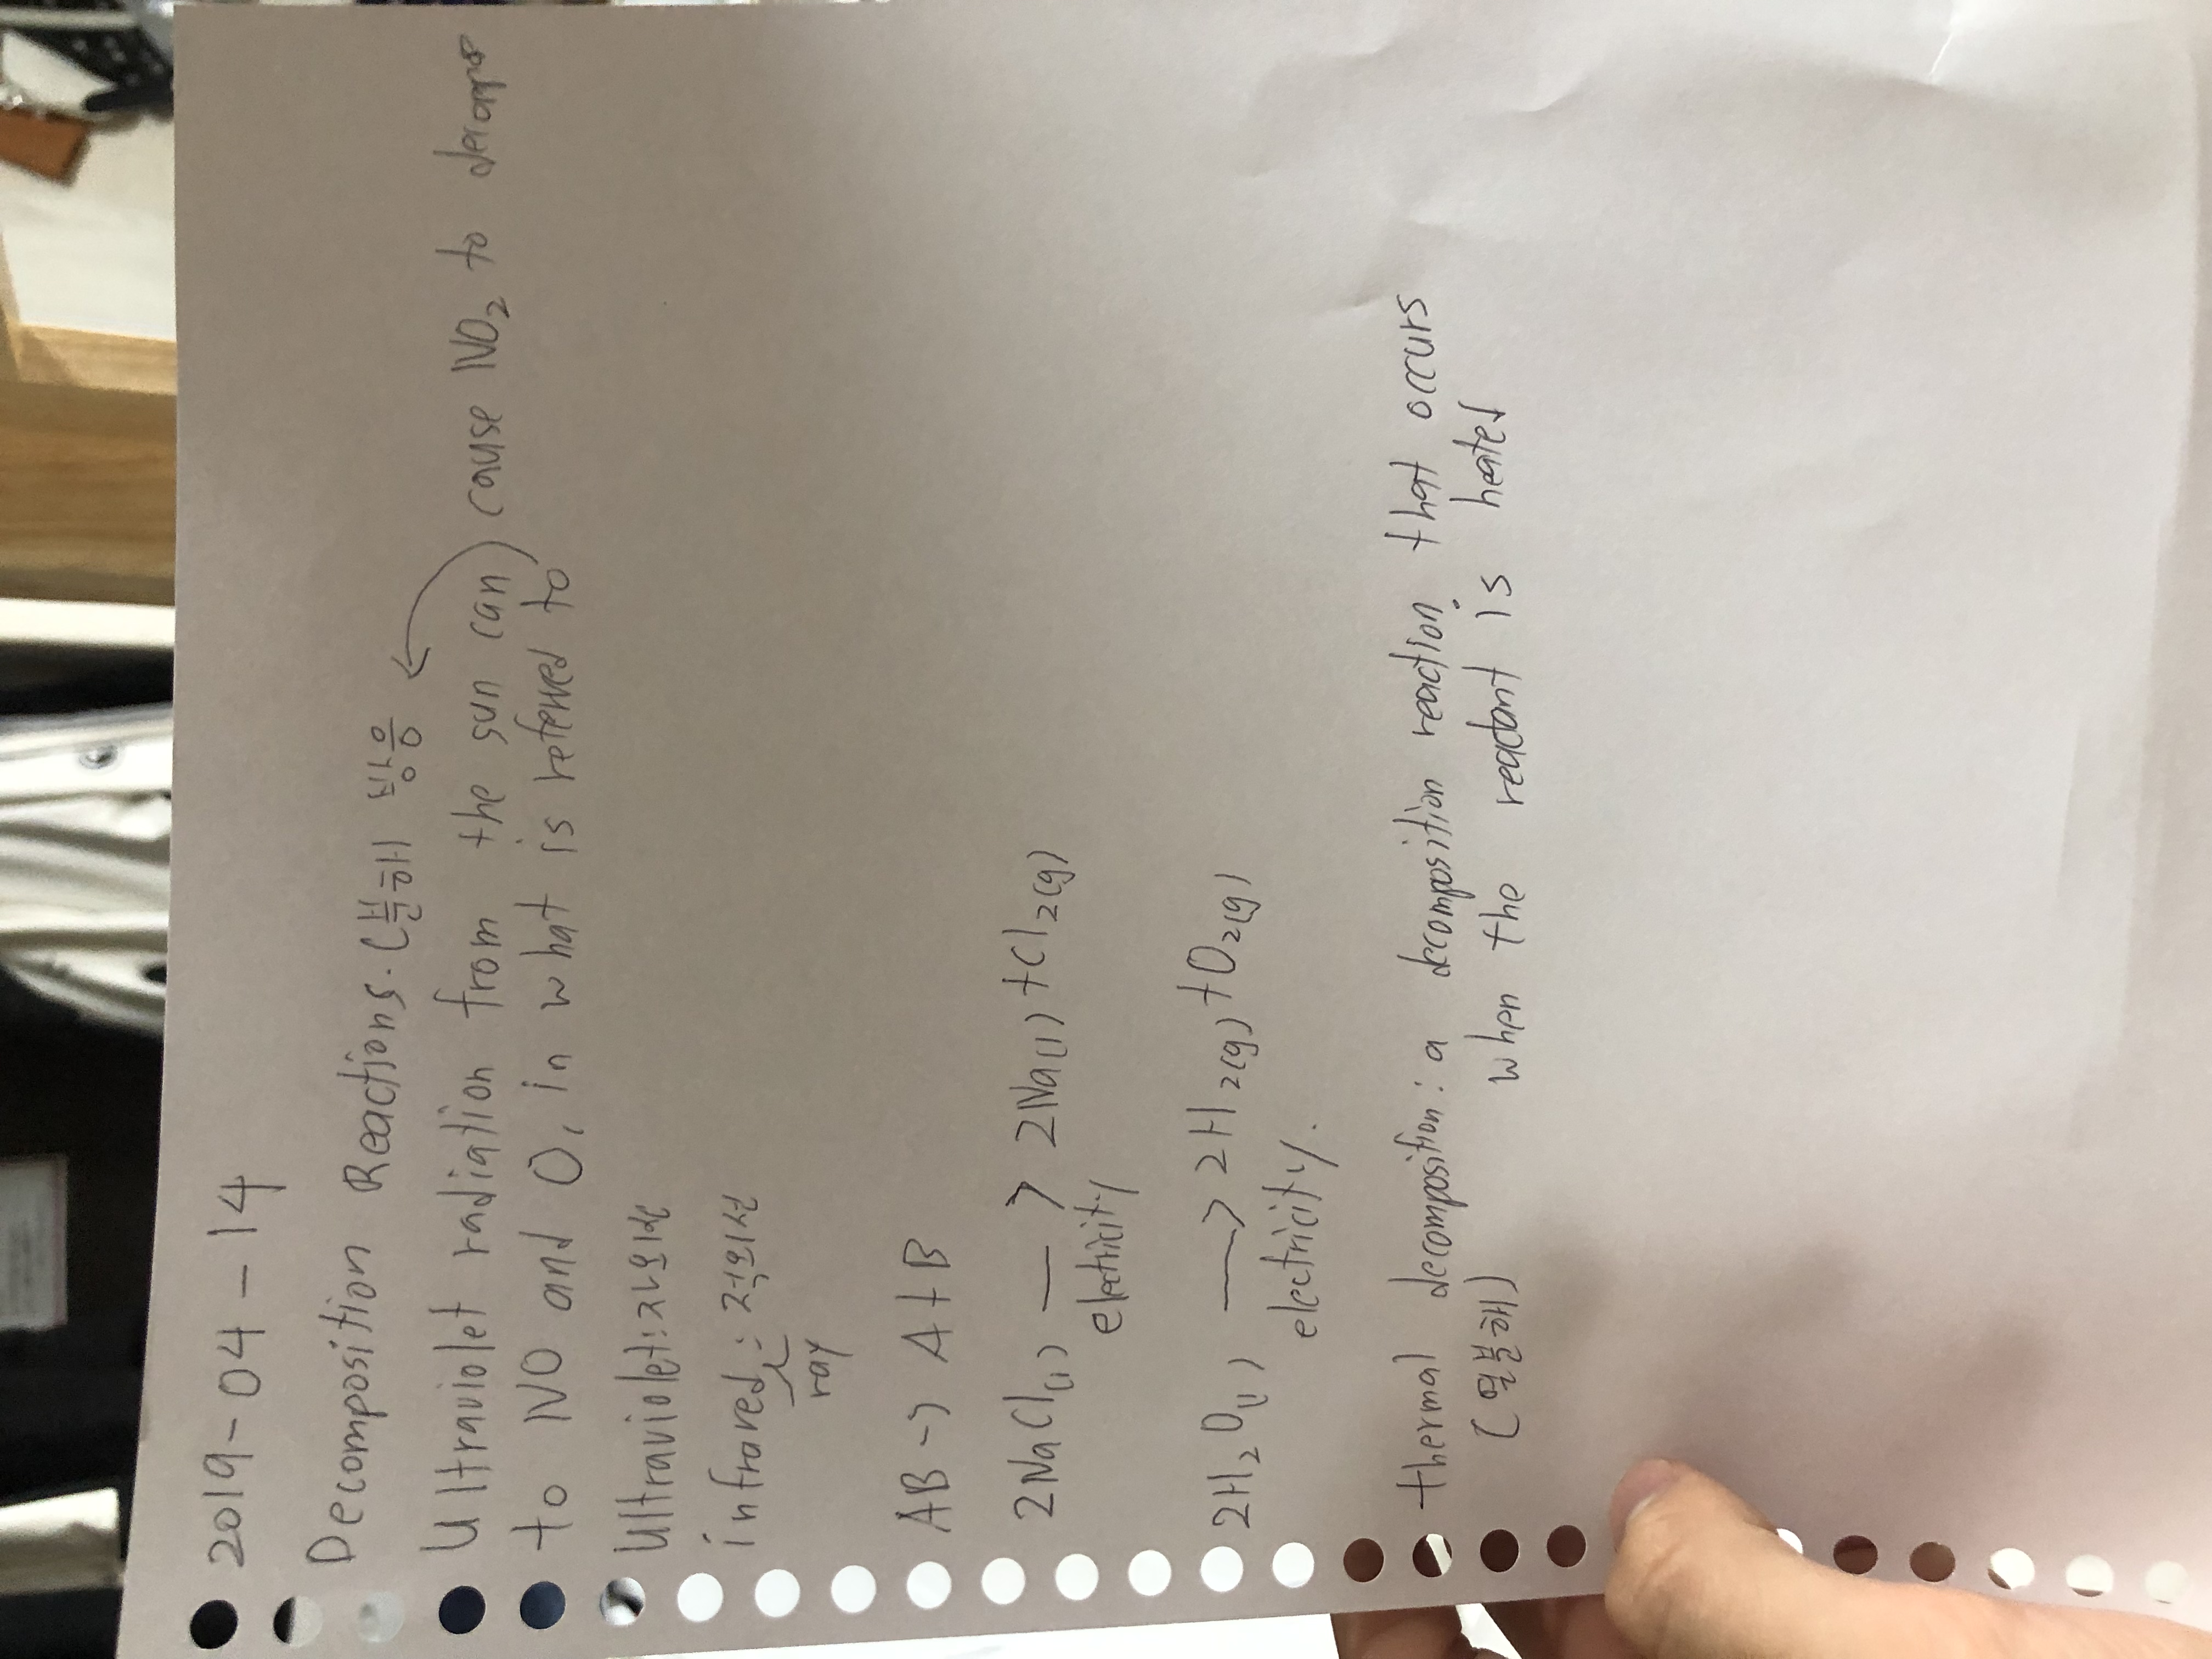 2019-04-14
Decomposition Reactions. (분해 반응
Ultraviolet radiation from the sun can) cause NO₂ to decomp
to NO and O, in what is referred to
Ultraviolet: 자외선
infrared: 적외선
ray
AB → A+B
2NaCl(l) → 2Na(l) + Cl₂(g)
electricity
2H₂O(l) → 2H₂(g) + O₂(g)
electricity.
thermal decomposition: a decomposition reaction that occurs
(열분해) when the reactant is heated